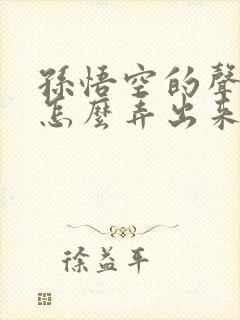 孫悟空的聲
怎麼弄出來
徐益平